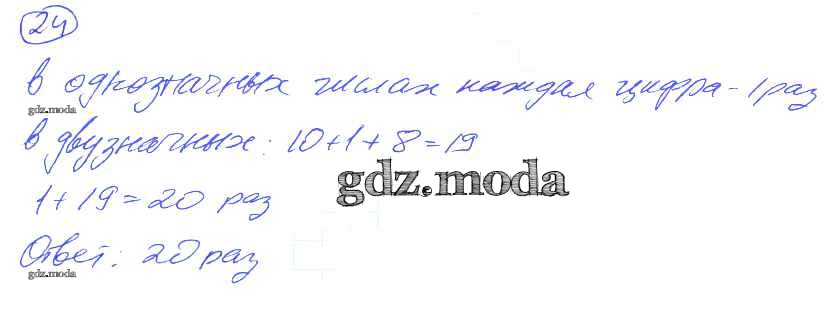 24
В однозначных числах каждая цифра - 1 раз
gdz.moda
В двузначных: 10+1+8=19
gdz.moda
1+19=20 раз
Ответ: 20 раз
gdz.moda